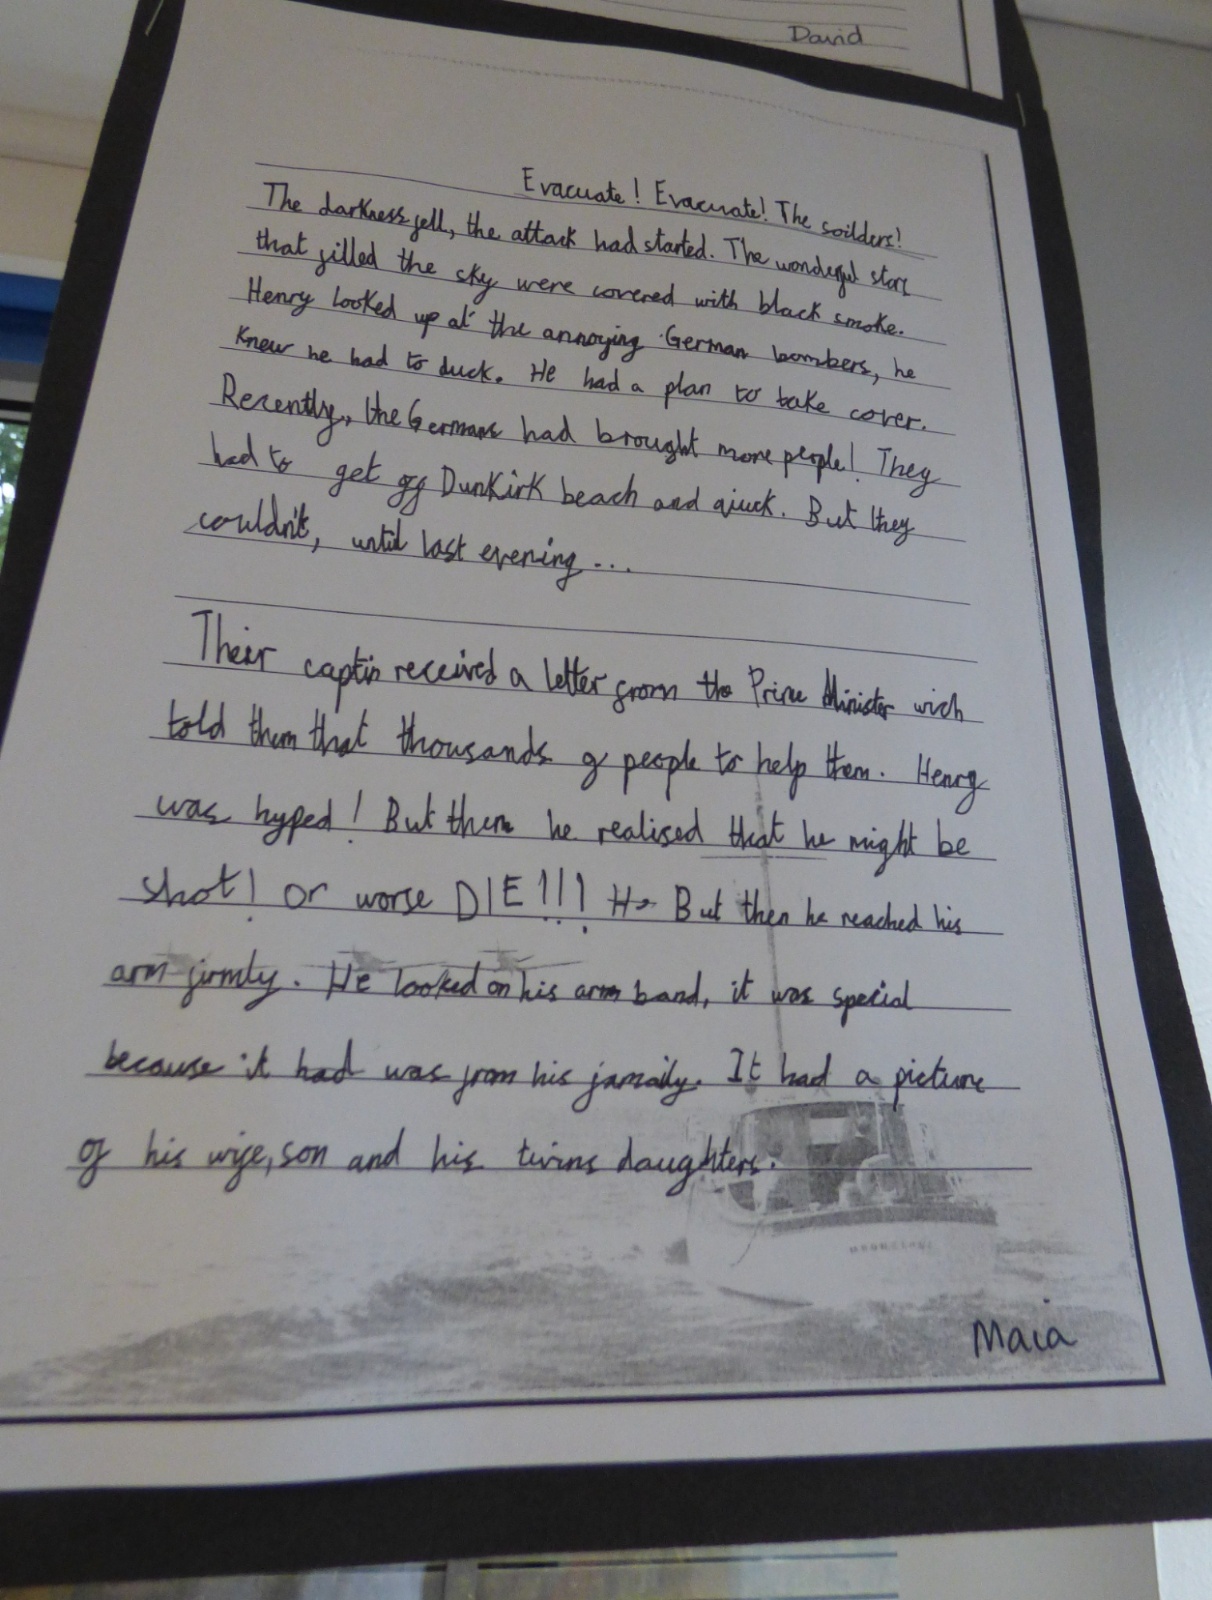 David
Evacuate! Evacuate! The soilders!
The darkness fell, the attack had started. The wonderful stars
that filled the sky were covered with black smoke.
Henry looked up at the annoying German bombers, he
knew he had to duck. He had a plan to take cover.
Recently, the Germans had brought more people! They
had to get off Dunkirk beach and qiuck. But they
couldn't, until last evening...
Their captin received a letter from the Prime Minister wich
told them that thousands of people to help them. Henry
was hyped! But then he realised that he might be
shot! Or worse DIE!!! He But then he reached his
arm firmly. He looked on his arm band, it was special
because it had was from his famaily. It had a picture
of his wife, son and his twins daughters.
Maia